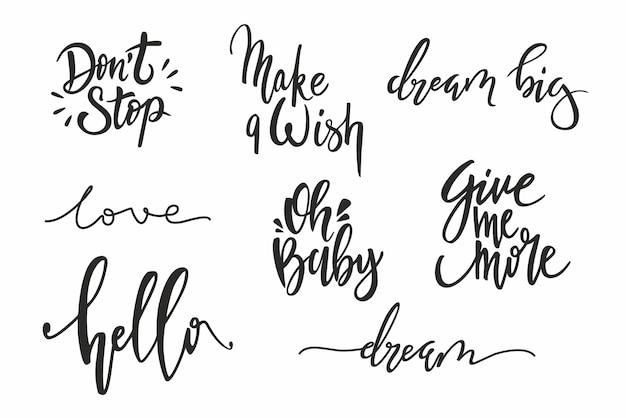 Don't
Stop
Make
a Wish
dream big
love
Oh
Baby
Give
me
more
hello
dream